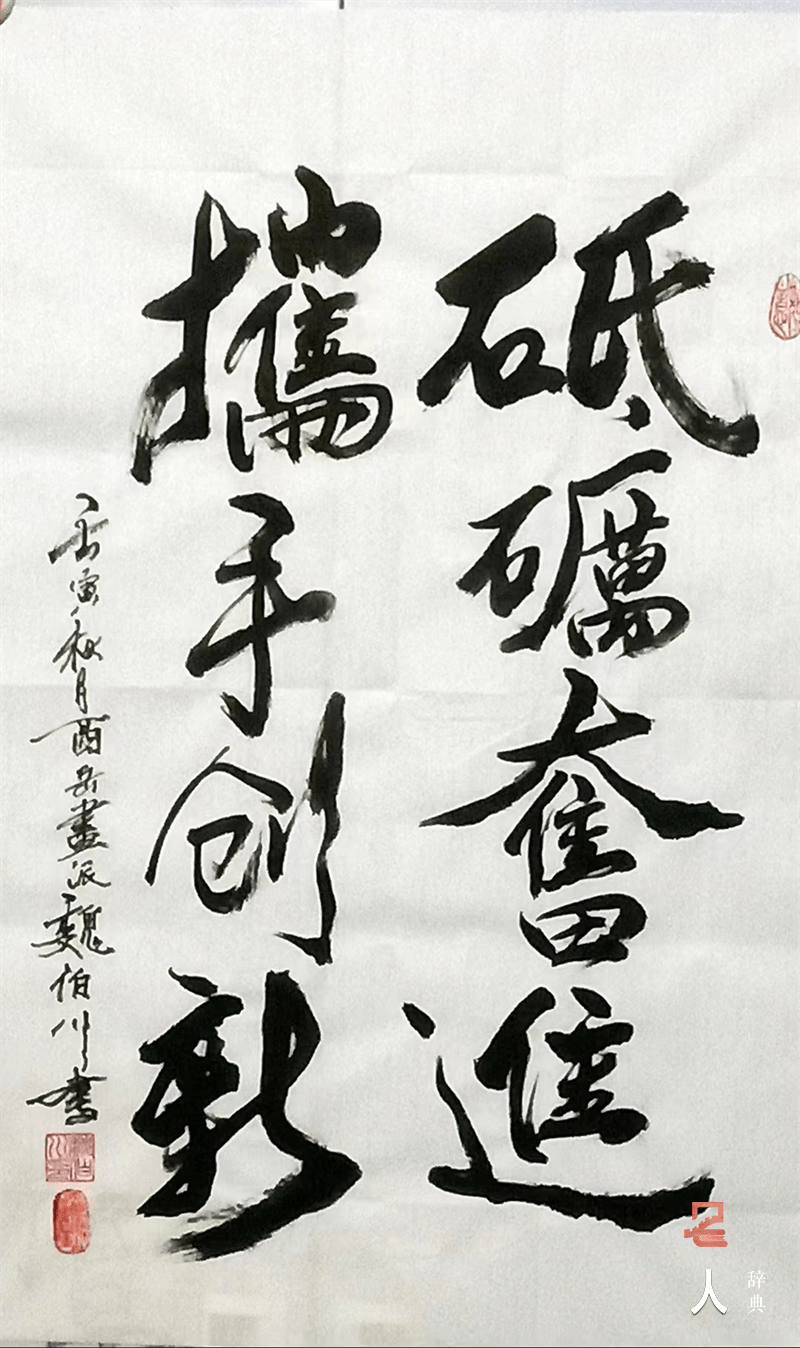 砥礪奮進
攜手创新
壬寅秋月酉岳畫派魏伯川書
人
辞典